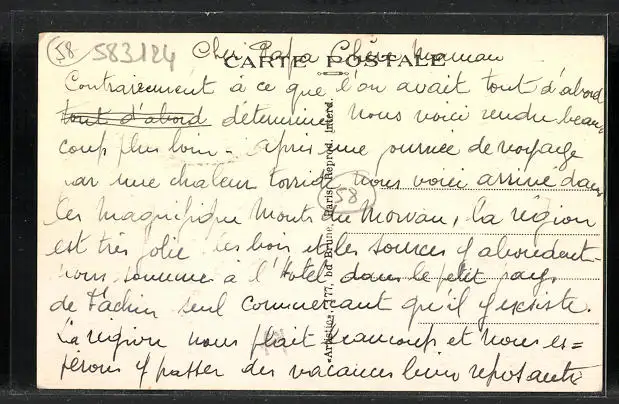 58 583124 Cher Papa Chère Maman
CARTE POSTALE
Contrairement à ce que l'on avait tout d'abord
tout d'abord déterminé nous voici rendu beau
coup plus loin - après une journée de voyage
par une chaleur torride nous voici arrivé dans
les magnifique Monts du Morvan, la région
est très jolie les bois et les sources y abondent -
nous sommes à l'Hotel dans le petit pays
de seul commercant qu'il y exsiste.
La région nous plait beaucoup et nous es=
pérons y passer des vacances bien reposante
58
«Artistic», 77, bd Brune, Paris. Reprod. Interd.